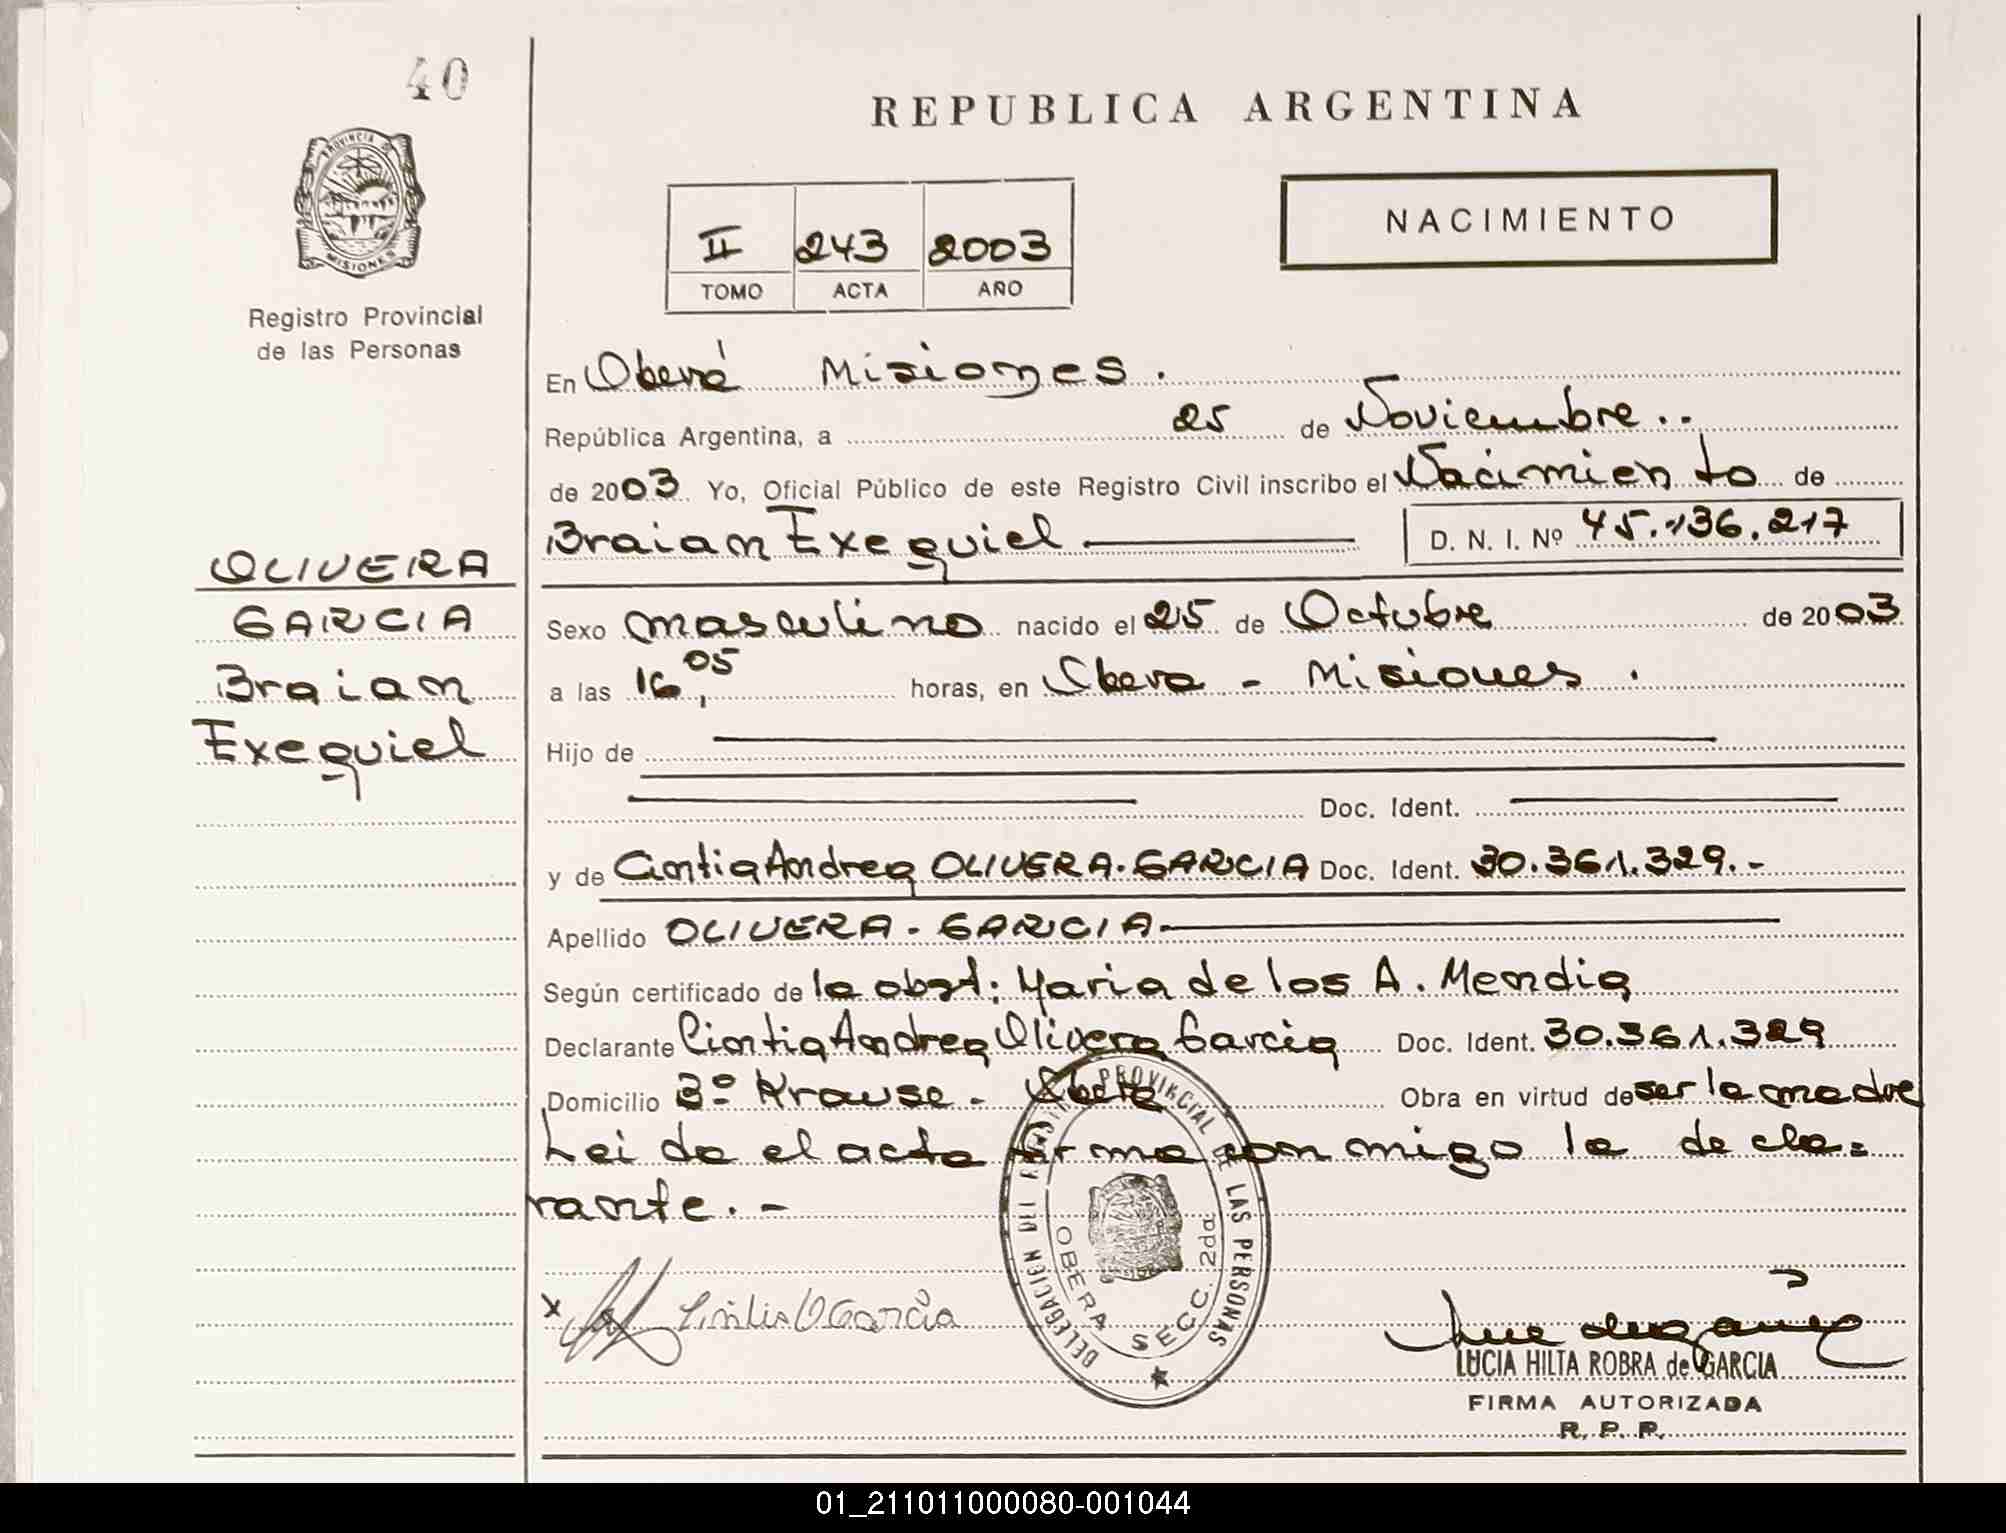 40
PROVINCIA DE
MISIONES
Registro Provincial
de las Personas
OLIVERA
GARCIA
Braian
Exequiel
REPUBLICA ARGENTINA
II 243 2003
TOMO ACTA AÑO
NACIMIENTO
En Oberá Misiones.
República Argentina, a 25 de Noviembre..
de 2003. Yo, Oficial Público de este Registro Civil inscribo el Nacimiento de
Braian Exequiel D. N. I. Nº 45.136.217
Sexo masculino nacido el 25 de Octubre de 2003
a las 16,05 horas, en Obera - Misiones.
Hijo de
Doc. Ident.
y de Cintia Andrea OLIVERA.GARCIA Doc. Ident. 30.361.329.-
Apellido OLIVERA-GARCIA-
Según certificado de la obst: Maria de los A. Mendia
Declarante Cintia Andrea Olivera Garcia Doc. Ident. 30.361.329
Domicilio Bº Krause - Obera Obra en virtud de ser la madre
Leida el acta firma conmigo la decla=
rante.-
DELEGACION DEL REGISTRO PROVINCIAL DE LAS PERSONAS
OBERA SECC. 2da
x Garcia
LUCIA HILTA ROBRA de GARCIA
FIRMA AUTORIZADA
R. P. P.
01_211011000080-001044